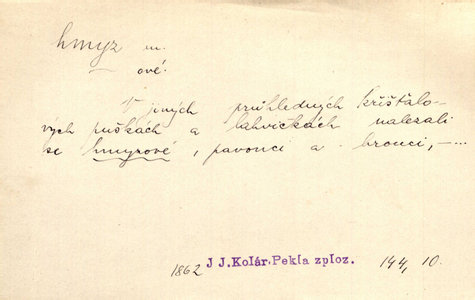 hmyz m.
ové.
V jiných průhledných křišťálo-
vých puškách a lahvičkách nalezali
se hmyzové, pavouci a brouci, – ...
1862 J J. Kolár. Pekla zploz. 144, 10.